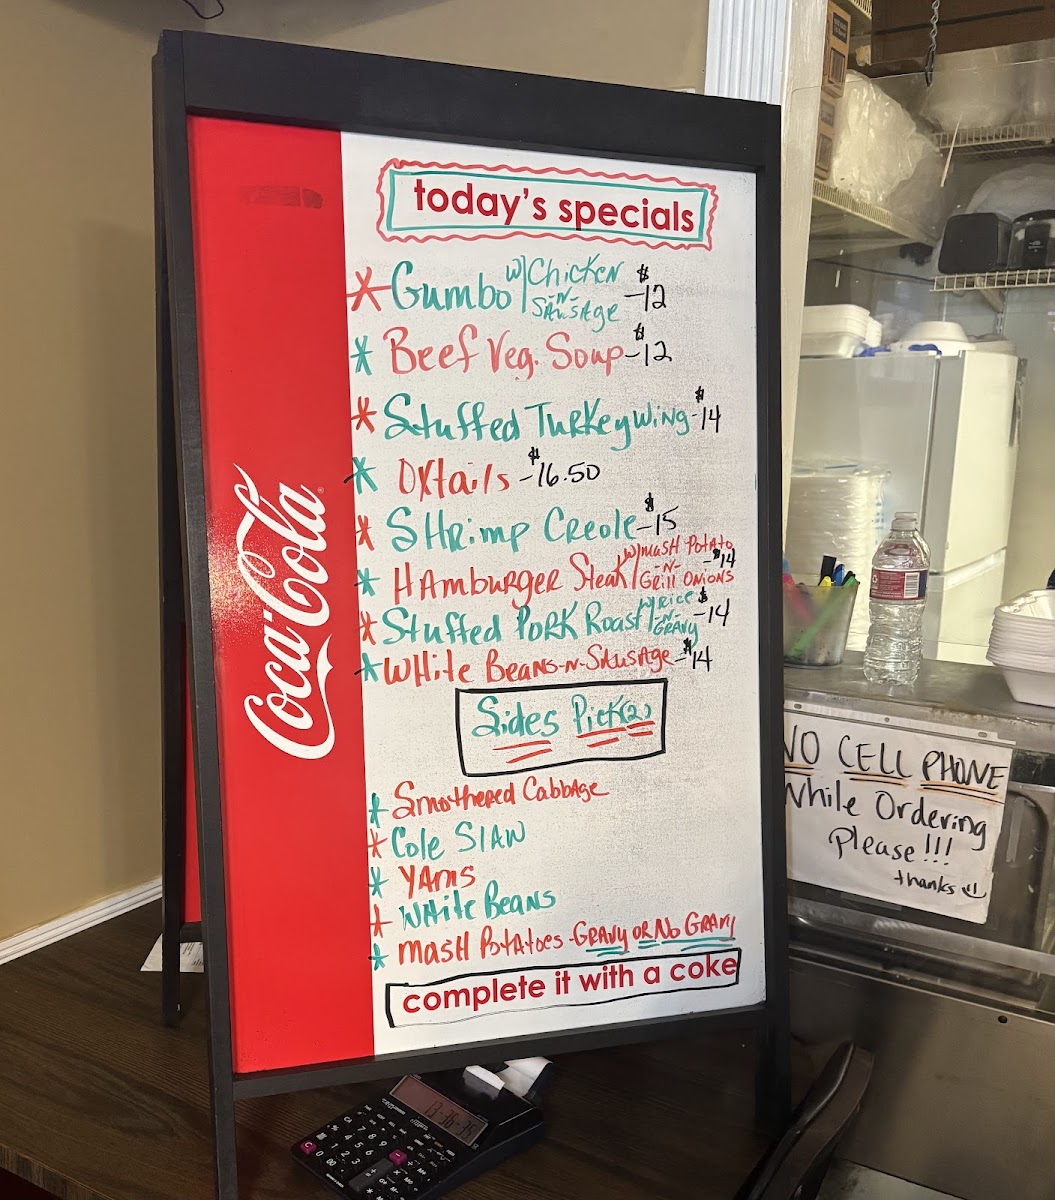 today's specials
* Gumbo w/ Chicken -N- Sausage - $12
* Beef Veg. Soup - $12
* Stuffed Turkey Wing - $14
* Oxtails - $16.50
* Shrimp Creole - $15
* Hamburger Steak w/ mash Potato -N- Grill Onions - $14
* Stuffed Pork Roast w/ rice -N- Gravy - $14
* White Beans -N- Sausage - $14
Sides Pick (2)
* Smothered Cabbage
* Cole Slaw
* Yams
* White Beans
* Mash Potatoes - Gravy or No Gravy
complete it with a coke
Coca-Cola
NO CELL PHONE
While Ordering
Please!!!
thanks